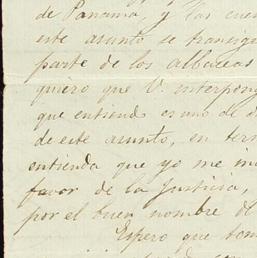 de Panamá, y las cuen
este asunto se transig
parte de los albaceas
quiero que V. interpong
que entiendo es uno de
de este asunto, en ter
entienda que yo me
favor de la Justicia,
por el buen nombre de
Espero que tom